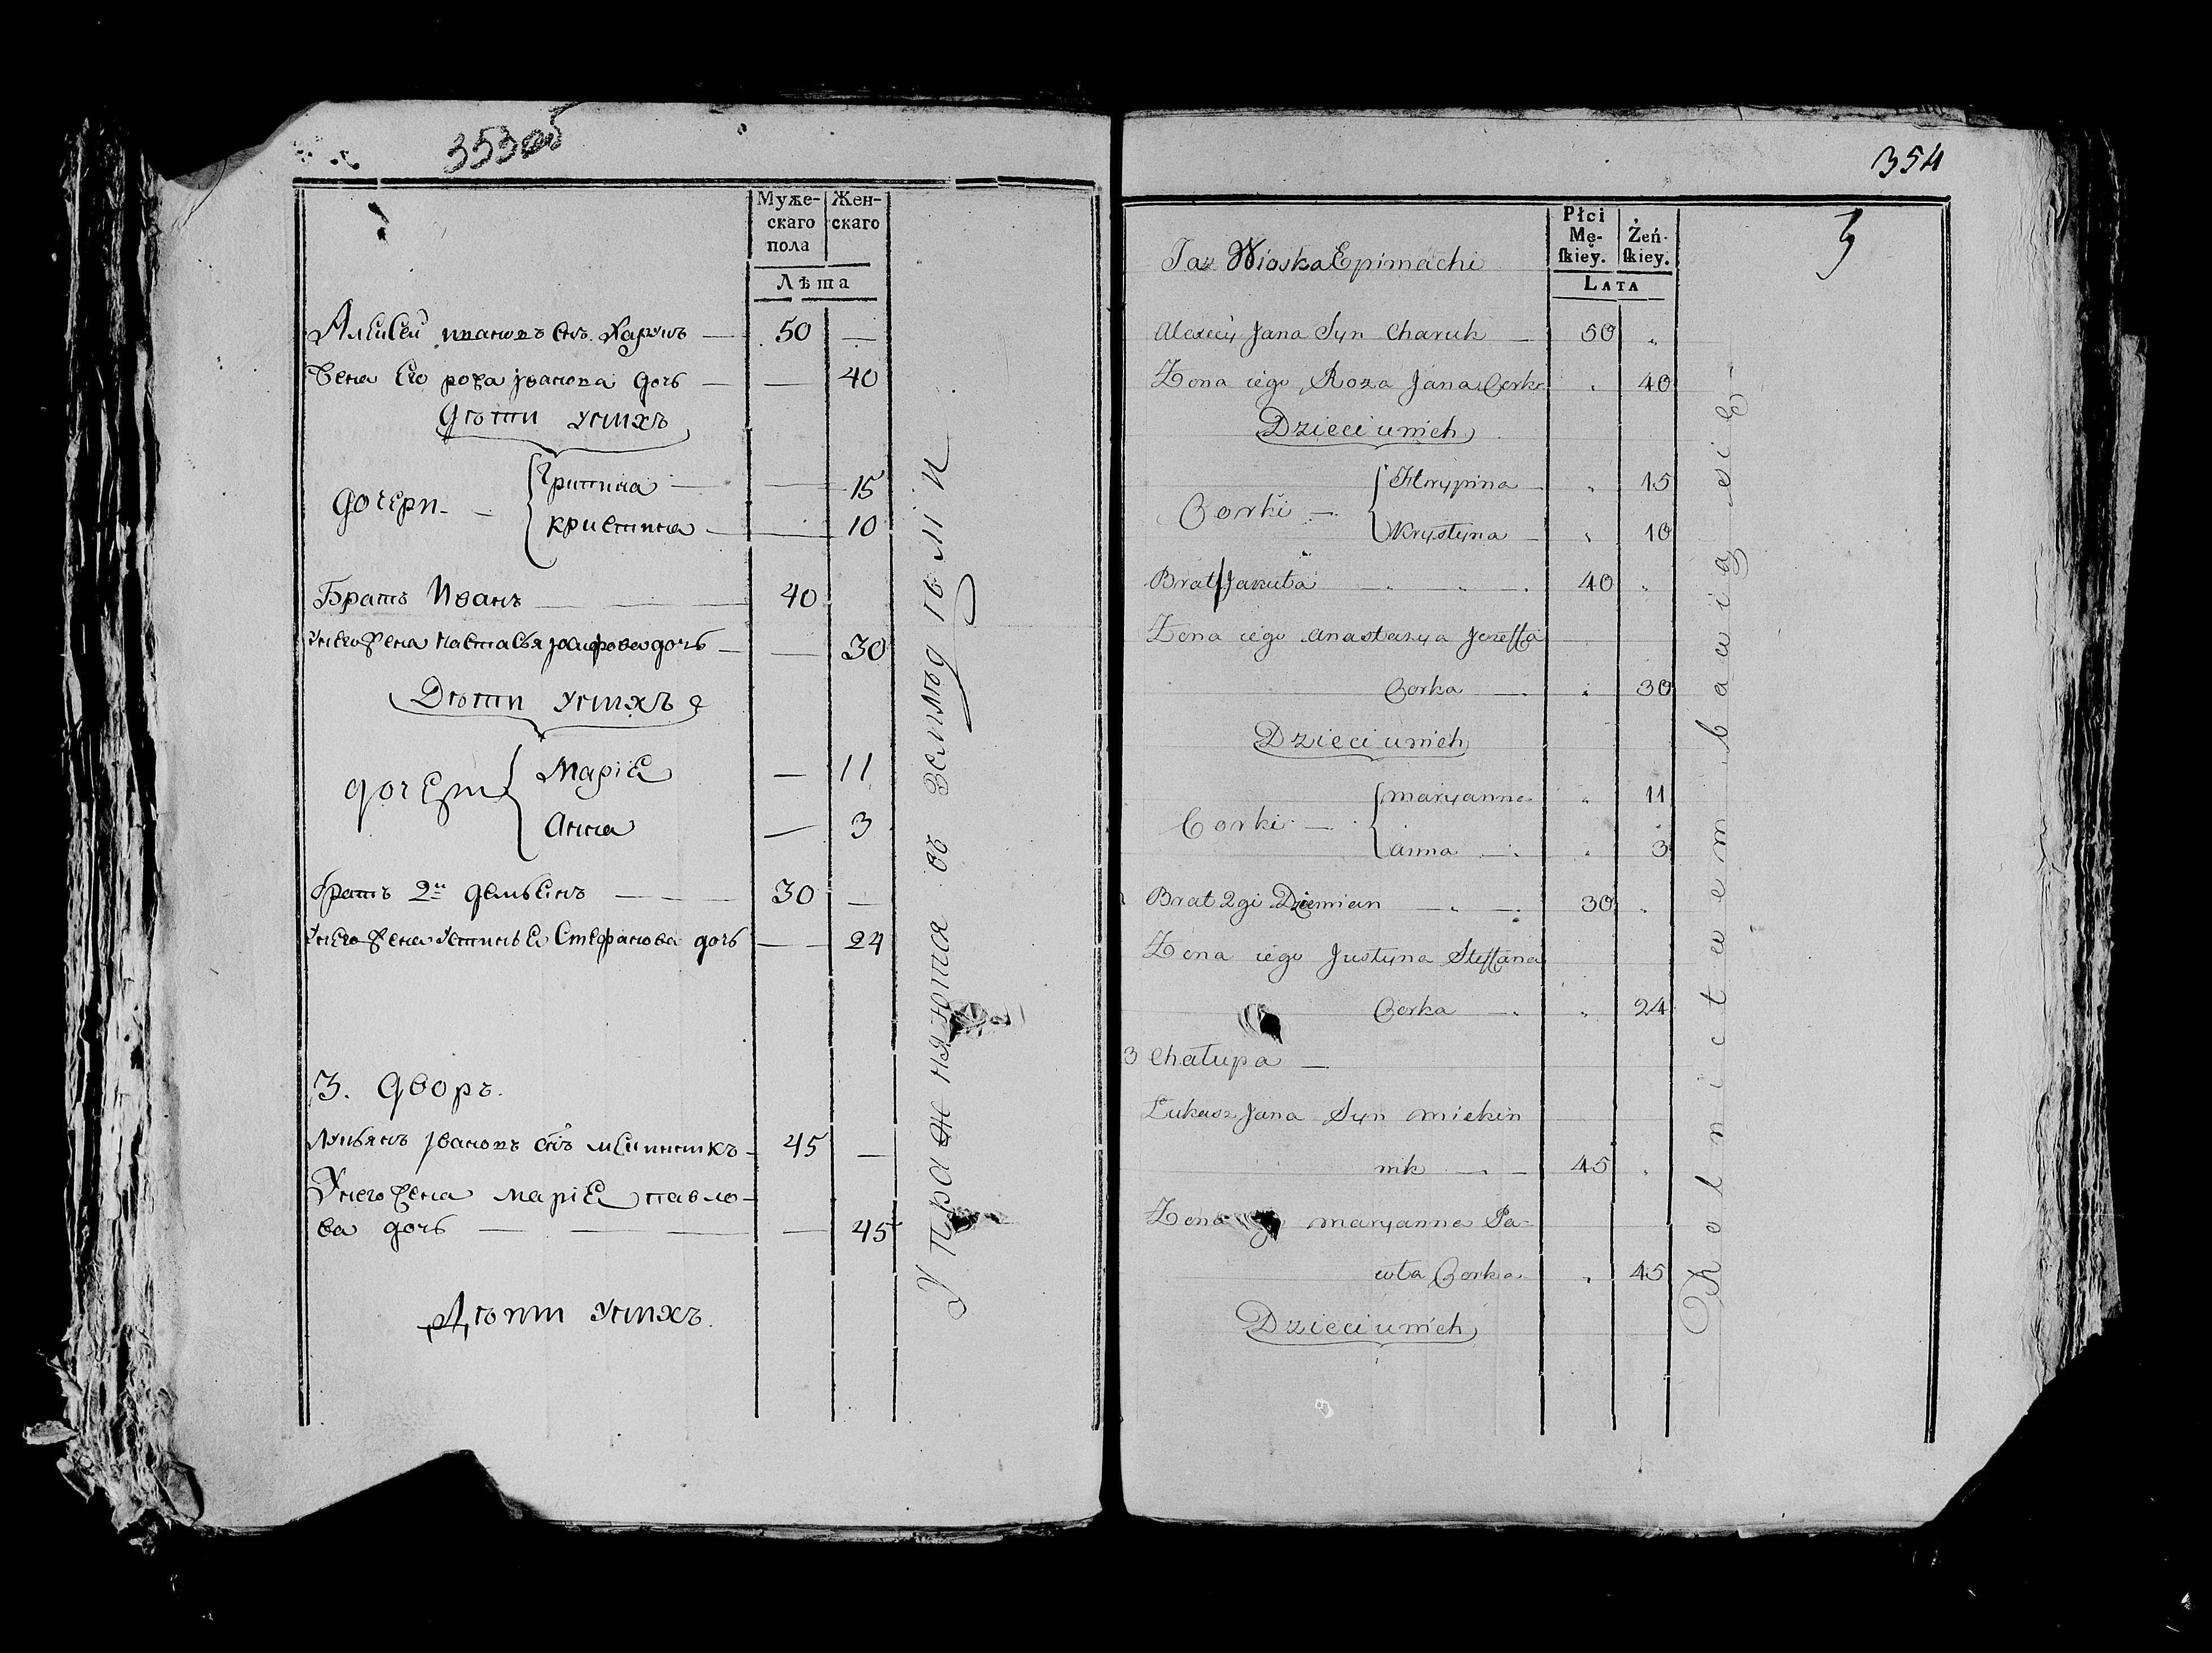 353об
Муже-
скаго
пола
Жен-
скаго
Лѣта
Алексей ивановъ снъ Харукъ — 50 —
Жена Его роза јванова дочь — — 40
Дѣти унихъ
дочери — грипина — — 15
кристина — — 10
Братъ Иванъ — 40
Унего жена настасья јозифова дочь — — 30
Дѣти унихъ
дочери Марiя — 11
Анна — 3
братъ 2й демьянъ — 30 —
Унего жена устинья Стефанова дочь — — 24
3. дворъ.
Лукьянъ јвановъ снъ — 45 —
Унего жена марiя павло-
ва дочь — — 45
Дѣти унихъ.
Упражняются въ земледѣлiи
354
3
Taz Wioska Epimachi
Płci
Mę-
ſkiey.
Żeń-
ſkiey.
LATA
Alexiey Jana Syn Charuk — 50 „
Zona iego Roza Jana Corka „ 40
Dzieci unich
Corki — Hrypina — „ 15
Krystyna — „ 10
Brat Januta — „ — „ — . 40 „
Zona iego anastazya Jozeffa
Corka — . „ 30
Dzieci unich
Corki — . maryanna „ 11
anna — . „ 3
Brat 2gi Dziemian — „ — . 30 „
Zona iego Justyna Steffana
Corka — . „ 24
3 Chałupa —
Łukasz Jana Syn miekin
nik — . — 45 „
Zona maryanna Pa-
wła Corka „ 45
Dzieci unich
Rolnictwem bawią się